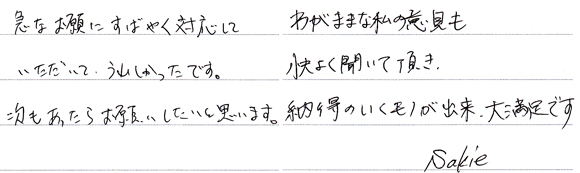 急なお願にすばやく対応して
いただいて、うれしかったです。
次もあったらお願いしたいと思います。
わがままな私の意見も
快よく聞いて頂き、
納得のいくモノが出来、大満足です
Sakie